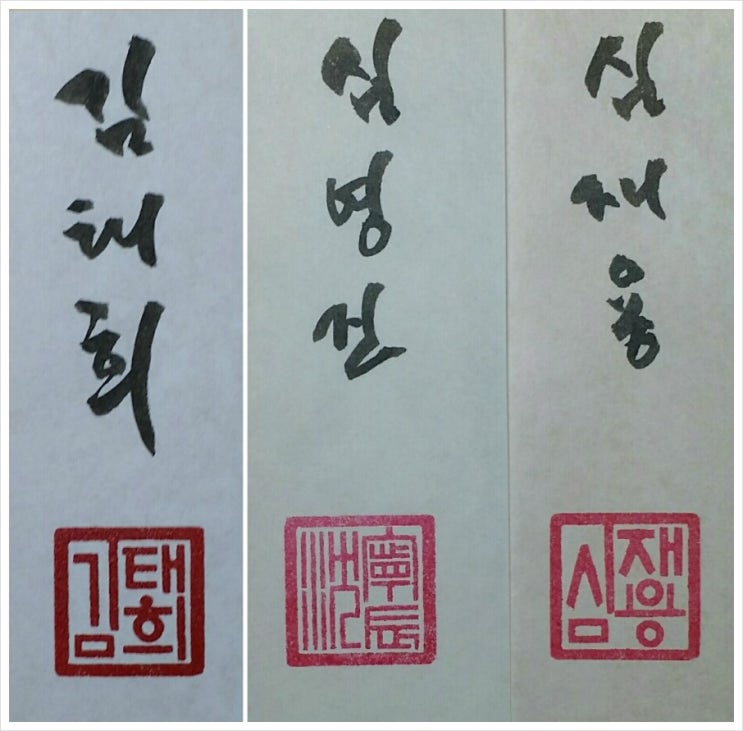 김태희
김태희
심영진
沈寧辰
심재용
심재용